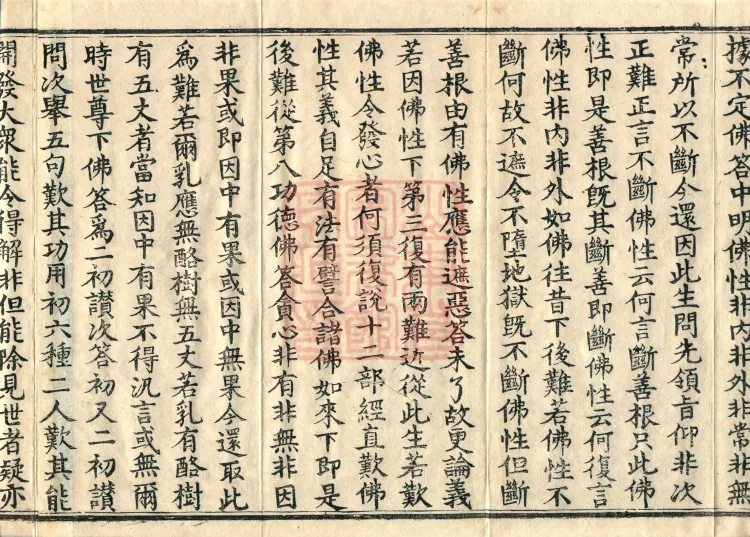 據不定佛答中明佛性非內非外非常非無
常所以不斷今還因此生問先領旨仰非次
正難正言不斷佛性云何言斷善根只此佛
性即是善根旣其斷善即斷佛性云何復言
佛性非內非外如佛往昔下後難若佛性不
斷何故不遮令不墮地獄旣不斷佛性但斷
善根由有佛性應能遮惡答未了故更論義
若因佛性下第三復有兩難近從此生若歎
佛性令發心者何須復說十二部經直歎佛
性其義自足有法有譬合諸佛如來下即是
後難從第八功德佛答貪心非有非無非因
非果或即因中有果或因中無果今還取此
爲難若爾乳應無酪樹無五丈若乳有酪樹
有五丈者當知因中有果不得汎言或無爾
時世尊下佛答爲二初讃次答初又二初讃
問次舉五句歎其功用初六種二人歎其能
開發大衆能令得解非但能除見世者疑亦